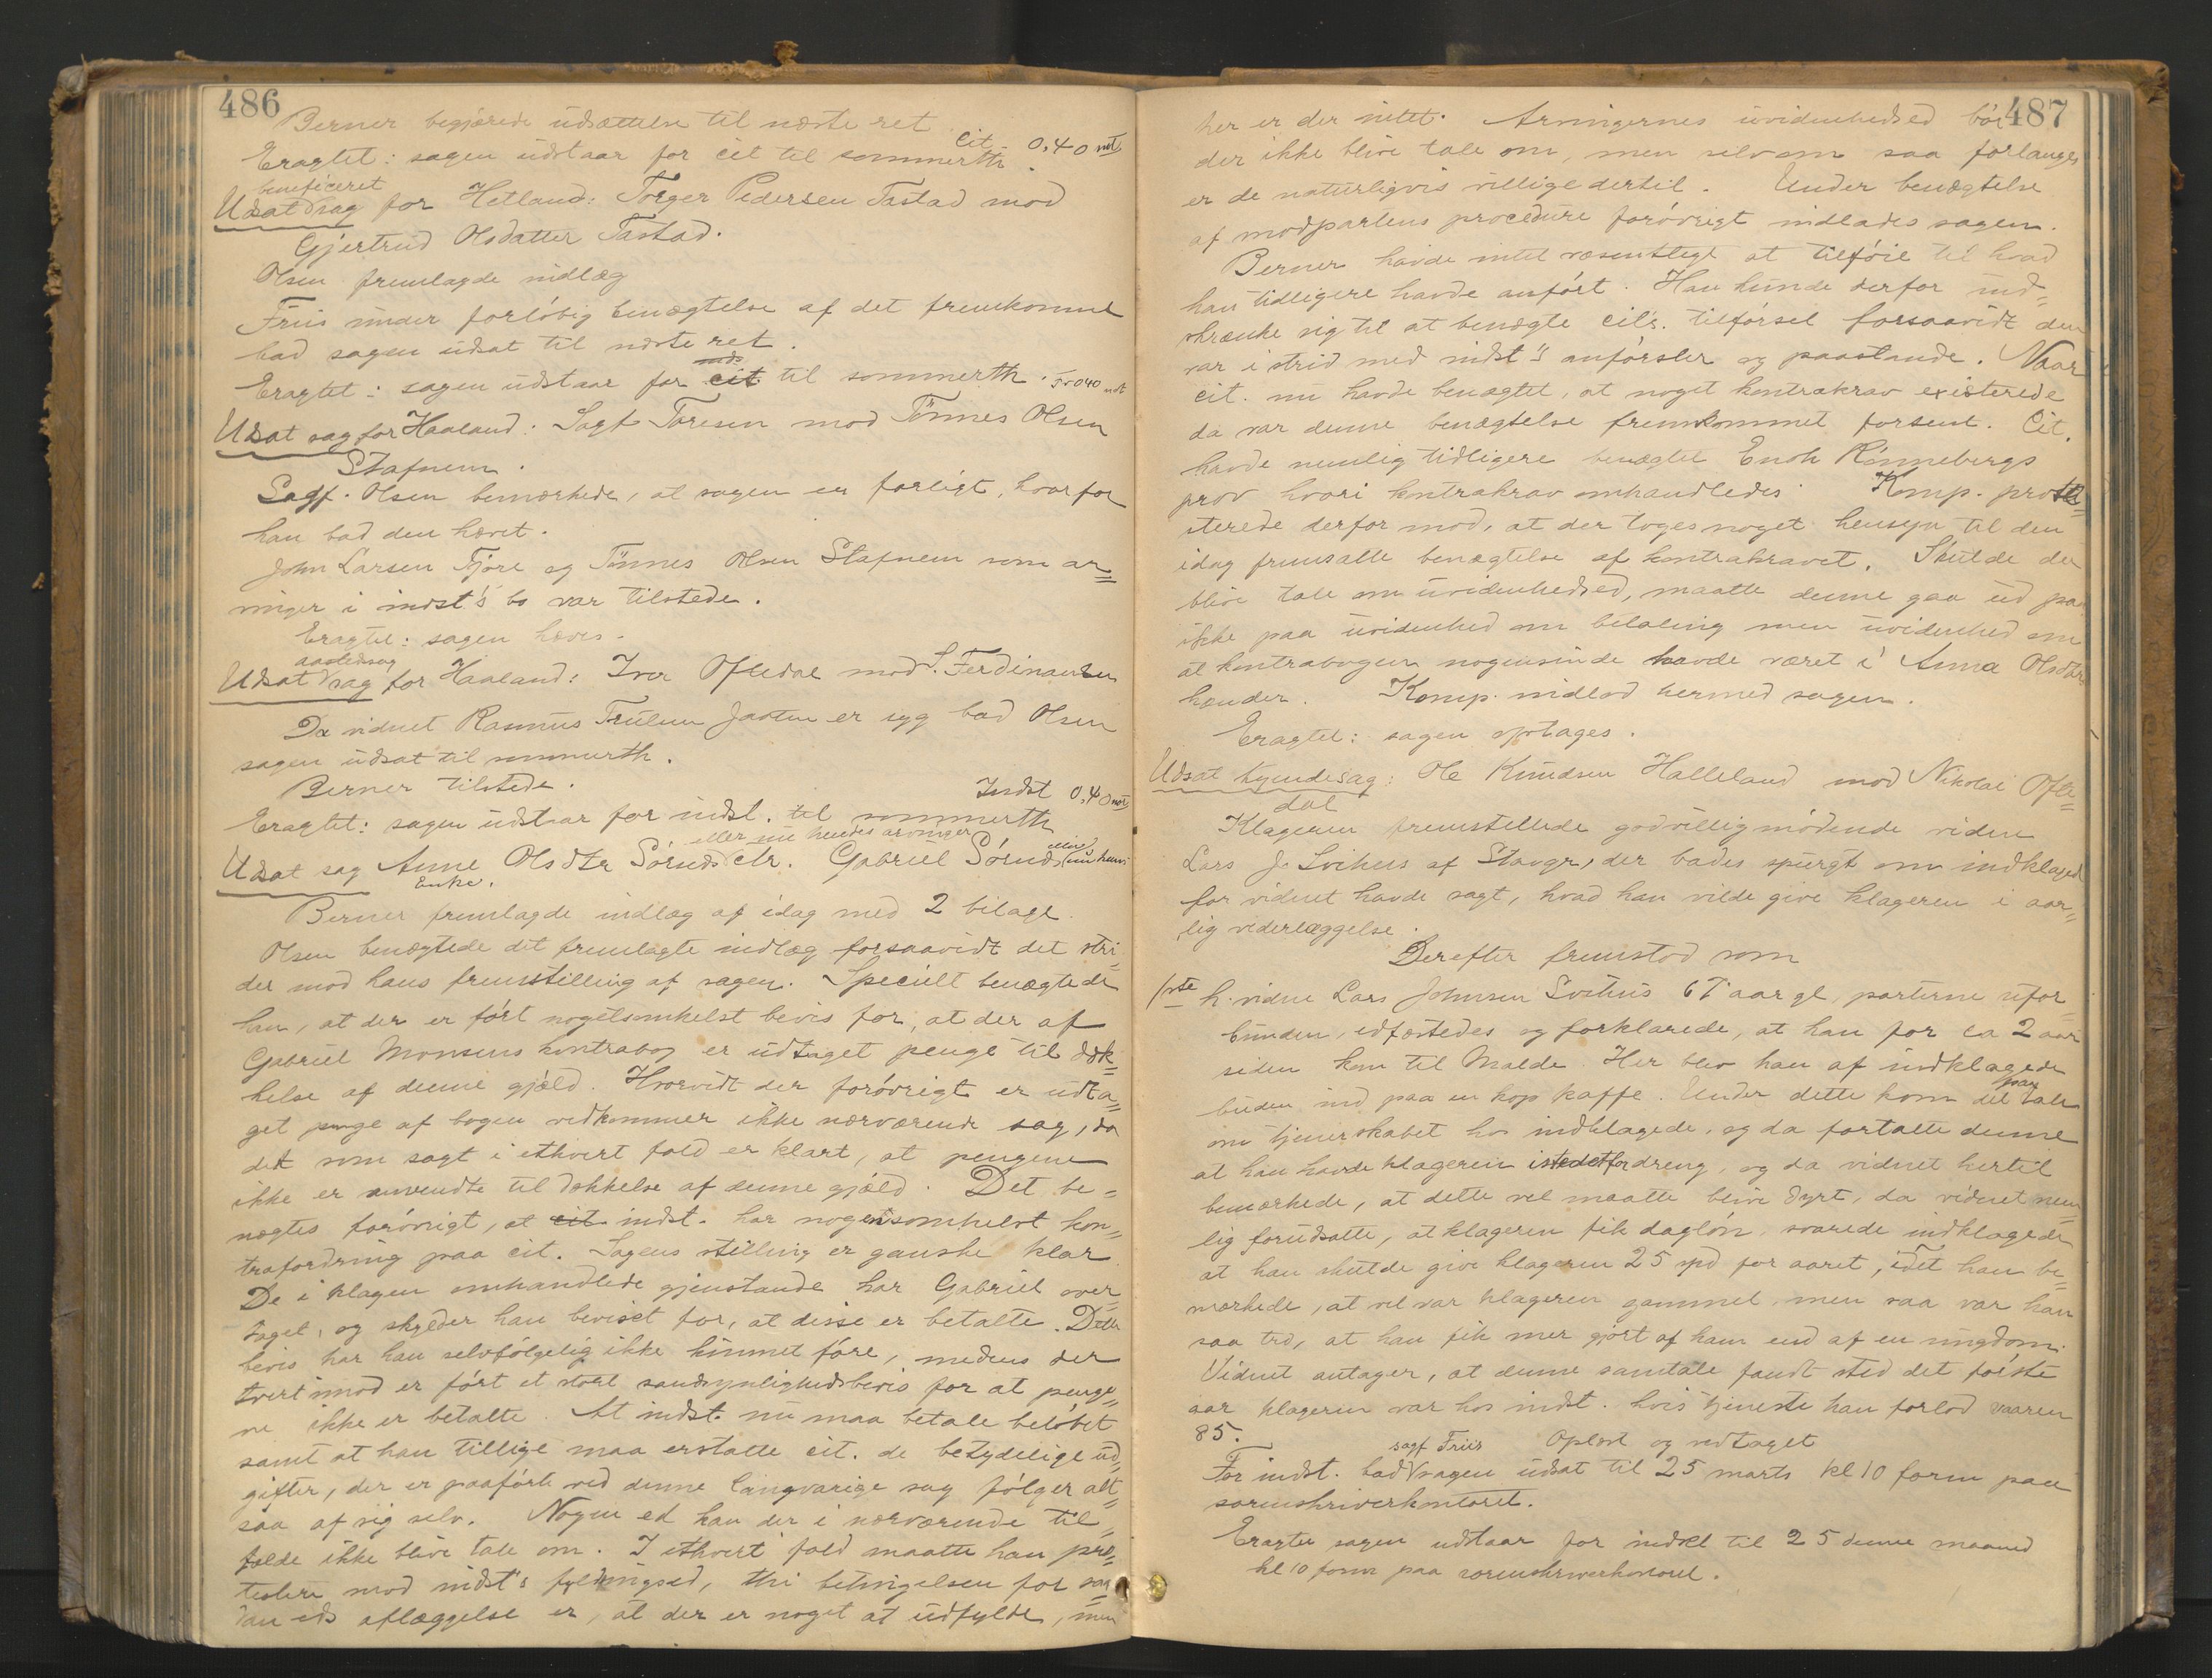 486
Berner begjærede udsættelse til næste ret
Eragtet: sagen udstaar for cit til sommerth. Cit 0,40 not
Udsat beneficeret sag for Hetland: Torger Pedersen Tastad mod
Gjertrud Olsdatter Tastad.
Olsen fremlagde indlæg
Friis under forløbig benægtelse af det fremkomne
bad sagen udsat til næste ret.
Eragtet: sagen udstaar for cit inds til sommerth. Fr 040 not
Udsat sag for Haaland: Sagf Toresen mod Tønnes Olsen
Stafnem.
Sagf. Olsen bemærkede, at sagen er forligt, hvorfor
han bad den hævet.
John Larsen Tjøre og Tønnes Olsen Stafnem som ar„
vinger i indst's bo var tilstede.
Eragtet: sagen hæves.
Udsat aastedssag sag for Haaland: Iver Oftedal mod S. Ferdinansen
Da vidnet Rasmus Trulsen Jaatten er syg bad Olsen
sagen udsat til sommerth.
Berner tilstede.
Eragtet: sagen udstaar for indst. til sommerth Indst 0,40 not
Udsat sag Anne Olsdtr Sørnes eller nu hendes arvinger ctr. Gabriel Sørnes eller nu hans
Enke.
Berner fremlagde indlæg af idag med 2 bilage.
Olsen benægtede det fremlagte indlæg forsaavidt det stri
der mod hans fremstilling af sagen. Specielt benægtede
han, at der er ført nogetsomhelst bevis for, at der af
Gabriel Monsens kontrabog er udtaget penge til dæk„
kelse af denne gjæld. Hvorvidt der forøvrigt er udta„
get penge af bogen vedkommer ikke nærværende sag, da
det som sagt i ethvert fald er klart, at pengene
ikke er anvendte til dækkelse af denne gjæld. Det be„
nægtes forøvrigt, at cit. indst. har nogensomhelst kon„
trafordring paa cit. Sagens stilling er ganske klar
De i klagen omhandlede gjenstande har Gabriel over
taget, og skylder han beviset for, at disse er betalte. Dette
bevis har han selvfølgelig ikke kunnet føre, medens der
tvertimod er ført et stort sandsynlighedsbevis for at penge„
ne ikke er betalte. At indst. nu maa betale beløbet
samt at han tillige maa erstatte cit. de betydelige ud„
gifter, der er paaførte ved denne langvarige sag følger alt„
saa af sig selv. Nogen ed kan der i nærværende til„
fælde ikke blive tale om. I ethvert fald maatte han pro„
testere mod indst's fyldningsed, thi betingelsen for saa
dan eds aflæggelse er, at der er noget at udfylde, men
487
her er der intet. Arvingernes uvidenhedsed bør
der ikke blive tale om, men selv om saa forlanges
er de naturligvis villige dertil. Under benægtelse
af modpartens procedure forøvrigt indlades sagen.
Berner havde intet væsentligt at tilføie til hvad
han tidligere havde anført. Han kunde derfor ind„
skrænke sig til at benægte cit's. tilførsel forsaavidt den
var i strid med indst's anførsler og paastande. Naar
cit. nu havde benægtet, at noget kontrakrav existerede
da var denne benægtelse fremkommet forsent. Cit.
havde nemlig tidligere benægtet Enok Rønnebergs
prov hvori kontrakrav omhandledes. Komp. prote„
sterede derfor mod, at der toges noget hensyn til den
idag fremsatte benægtelse af kontrakravet. Skulde der
blive tale om uvidenhedsed, maatte denne gaa ud paa
ikke paa uvidenhed om betaling men uvidenhed om
at kontrabogen nogensinde havde været i Anna Olsdtrs
hænder. Komp. indlod hermed sagen.
Eragtet: sagen optages.
Udsat hyndesag: Ole Knudsen Halleland mod Nikolai Ofte„
dal
Klageren fremstillede godvillig mødende vidne
Lars J. Svihus af Stavgr, der bades spurgt om indklagede
for vidnet havde sagt, hvad han vilde give klageren i aar„
lig vederlæggelse.
Derefter fremstod som
1ste h. vidne Lars Johnsen Svihus 67 aar gl, parterne ufor
bunden, edfæstedes og forklarede, at han for ca 2 aar
siden kom til Malde. Her blev han af indklagede
buden ind paa en kop kaffe. Under dette kom det paa tale
om tjenerskabet hos indklagede, og da fortalte denne
at han havde klageren istedetfor dreng, og da vidnet hertil
bemærkede, at dette vel maatte blive dyrt, da vidnet nem„
lig forudsatte, at klageren fik dagløn, svarede indklagede
at han skulde give klageren 25 spd for aaret, idet han be„
mærkede, at vel var klageren gammel, men saa var han
saa tro, at han fik mer gjort af ham end af en ungdom.
Vidnet antager, at denne samtale fandt sted det første
aar klageren var hos indst. hvis tjeneste han forlod vaaren
85. Oplæst og vedtaget
For indst. bad sagf Friis sagen udsat til 25 marts kl 10 form paa
sorenskriverkontoret.
Eragtet sagen udstaar for indkl til 25 denne maaned
kl 10 form paa sorenskriverkontoret.